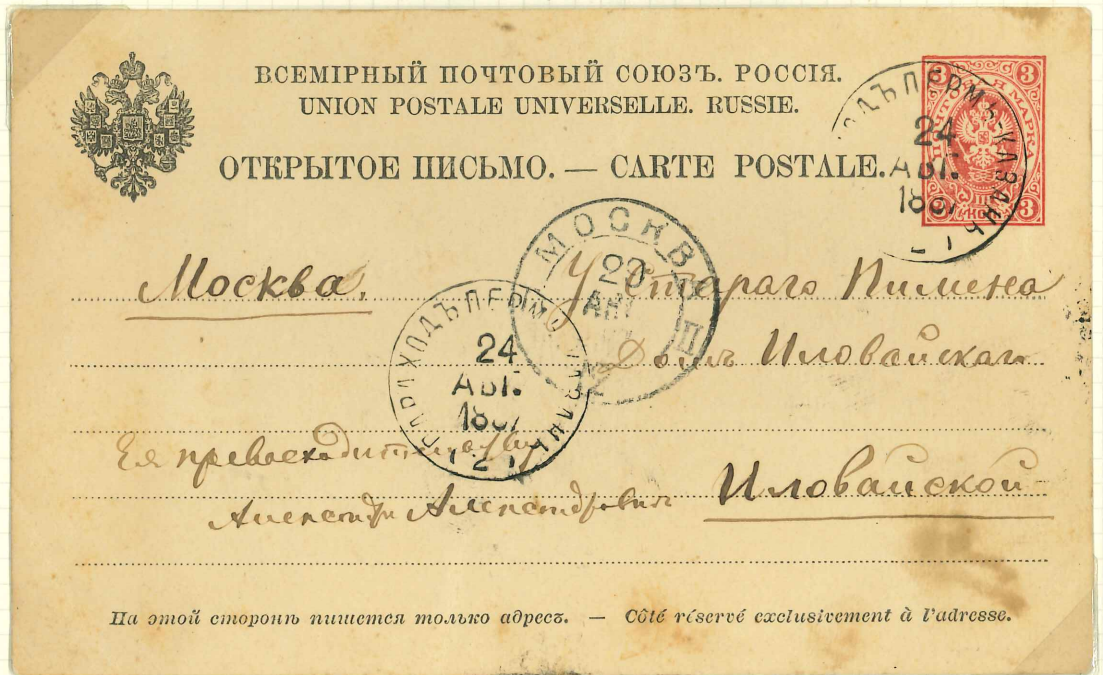 ВСЕМІРНЫЙ ПОЧТОВЫЙ СОЮЗЪ. РОССІЯ.
UNION POSTALE UNIVERSELLE. RUSSIE.
ОТКРЫТОЕ ПИСЬМО. — CARTE POSTALE.
3 3
МАРКА
3 3
ПЕРМЬ КАЗАНЬ
24
АВГ.
МОСКВА
II
Москва. У Стараго Пимена
ПАРОХОДЪ ПЕРМЬ
24
АВГ.
Домъ Иловайскаго
Ея превосходительству
Александрѣ Александровнѣ Иловайской
На этой сторонѣ пишется только адресъ. — Côté réservé exclusivement à l'adresse.